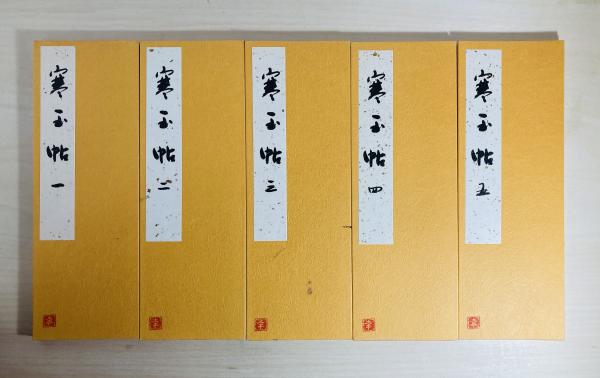 寒玉帖 一
寒玉帖 二
寒玉帖 三
寒玉帖 四
寒玉帖 五